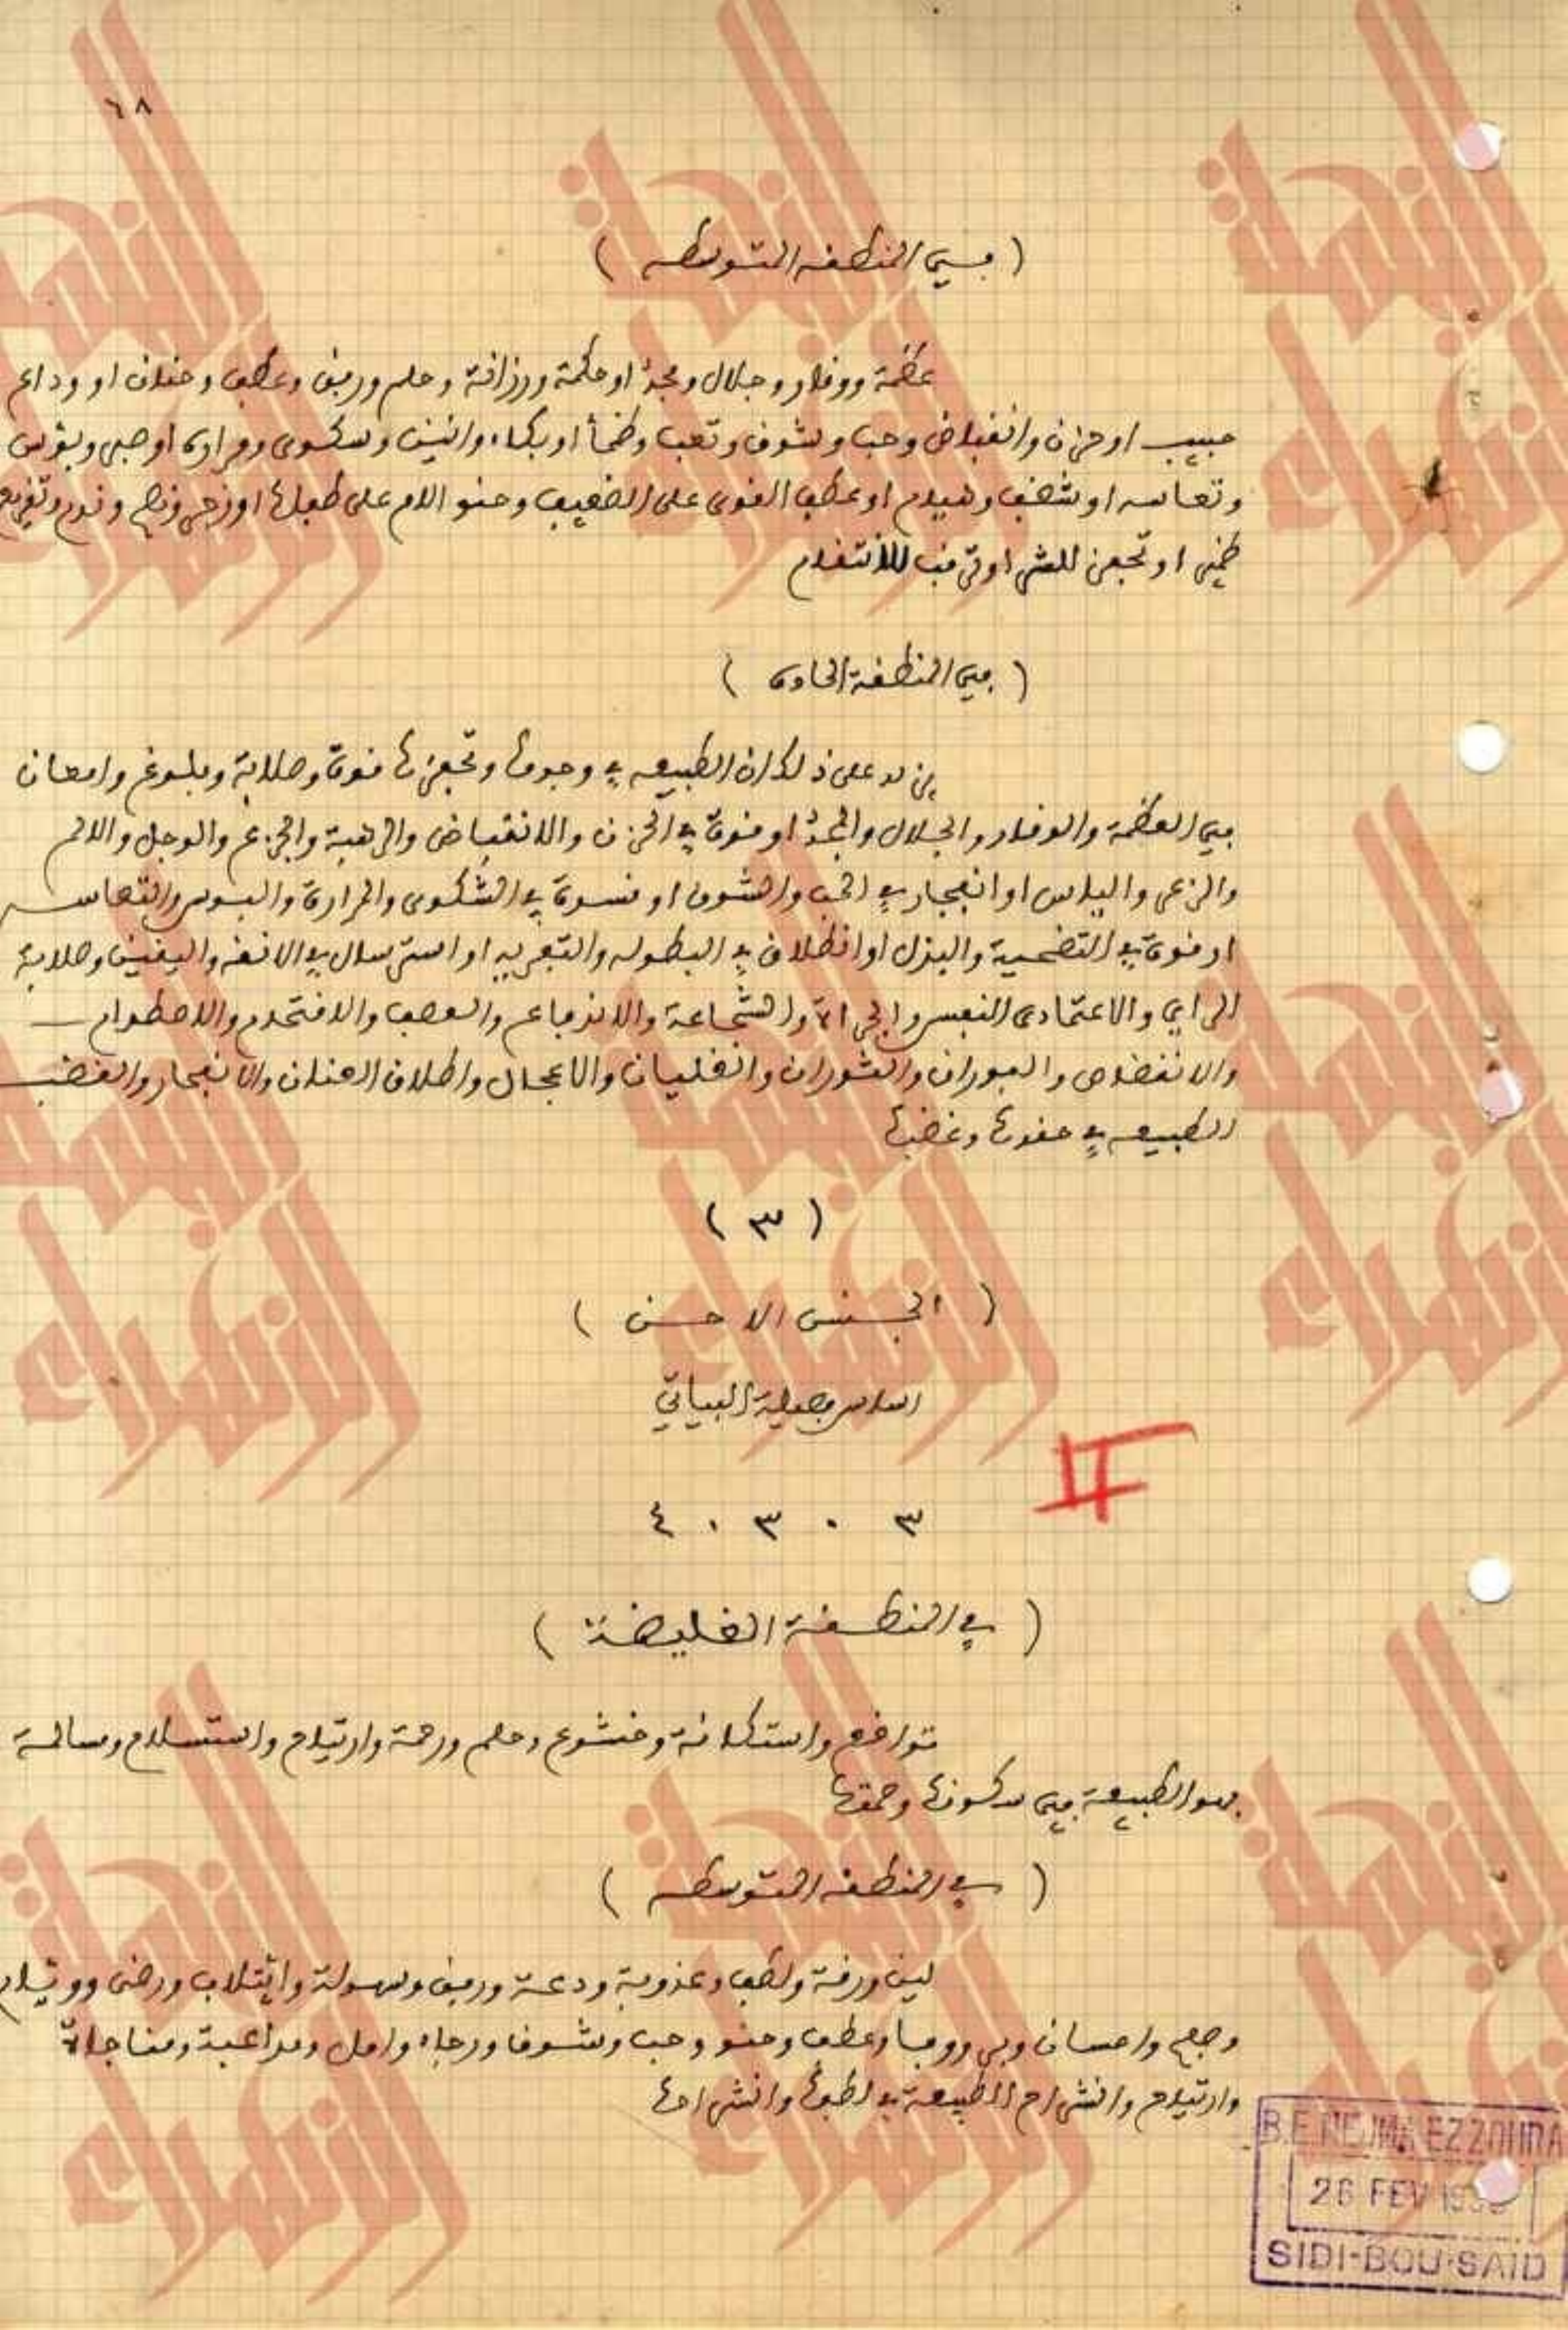 ٦٨
( في المنطقة المتوسطه )
عظمة ووقار وجلال ومجد او حكمة ورزانة وحلم ورفق وعطف وحنان او وداع
حبيب او حزن وانقباض وحب وتشوق وتعب وظمأ او بكاء وانين وشكوى ومرارة او صبر وبؤس
وتعاسه او شغف وهيام او عطف القوي على الضعيف وحنو الام على طفلها او زجر ونصح وندم وتقريع
ضمير او تحفز للشر او ترقب للانتقام
( في المنطقة الحادة )
يزيد على ذلك ان الطبيعه في وجومها وتحفزها قوة وصلابة وبلوغ وامعان
في العظمة والوقار والجلال والمجد او قوة في الحزن والانقباض والرهبة والجزع والوجل والالم
والزعر والياس او انفجار في الحب والشوق او قسوة في الشكوى والمرارة والبوس والتعاسه
او قوة في التضحية والبذل او انطلاق في البطوله والتعريه او استرسال في الانفه واليقين وصلابة
الراي والاعتماد على النفس والجراة والشجاعة والاندفاع والعصف والاقتحام والاصطدام
والانقضاض والفوران والثوران والغليان والاعجال واطلاق العنان والانفجار والغضب
الطبيعه في حقدها وغضبها
( ٣ )
( الجنس الاحسن )
اساس فصيلة البياتي
٣ ٠ ٣ ٠ ٤
II
( في المنطقة الغليضة )
تواضع واستكانة وخشوع وحلم ورحمة وارتياح واستسلام ومسالمة
الطبيعة في سكونها وصمتها
( في المنطقه المتوسطه )
لين ورقة ولطف وعذوبة ودعة ورفق وسهولة وائتلاف ورضى ووئام
وصفح واحسان وبر ووفا وعطف وحنو وحب وتشوق ورجاء وامل ومداعبة ومناجاة
وارتياح وانشراح الطبيعة في لطفها وانشراحها
B.E NEJMA EZZOHRA
26 FEV
SIDI-BOU-SAID
النجمة
الزهراء